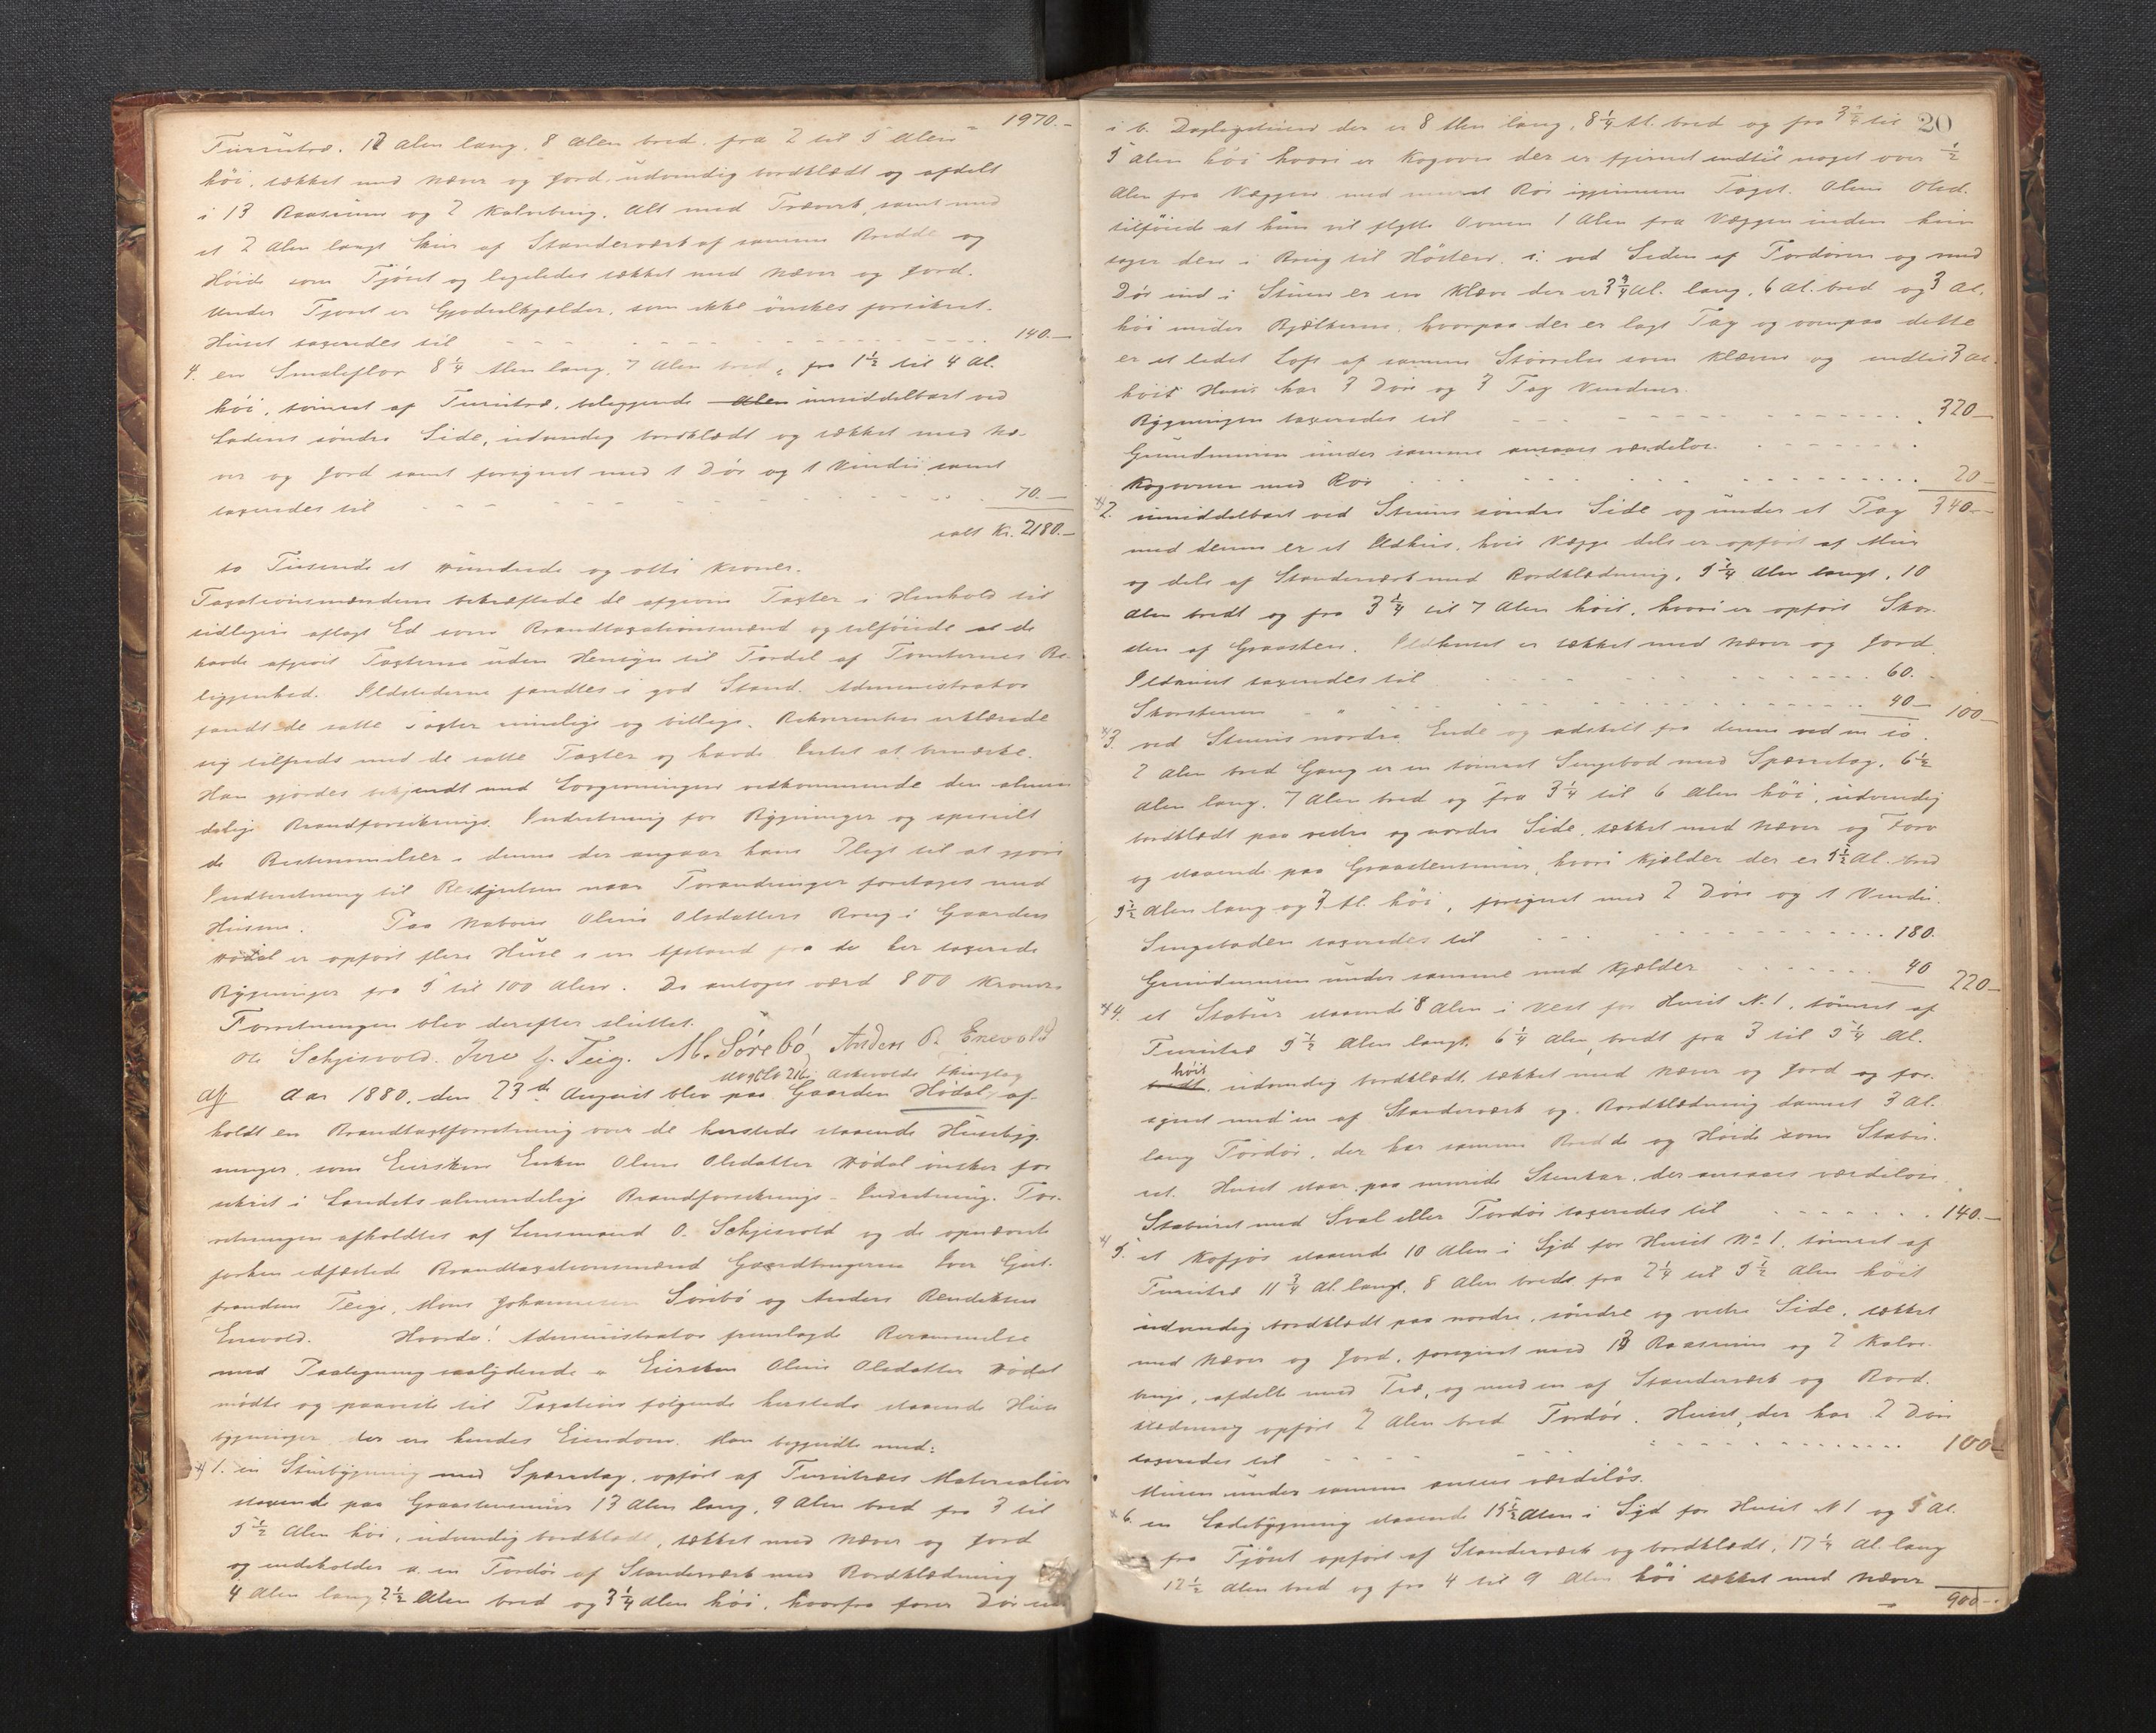 1970.-
Furutræ. 12 Alen lang. 8 Alen bred. fra 2 til 5 Alen
höi, tækket med Næver og Jord. udvendig bordklædt og afdelt
i 13 Baasrum og 2 Kalvebing. Alt med Træverk, samt med
et 2 Alen langt Skur af Standerværk af samme Bredde og
Höide som Fjöset og ligeledes tækket med Næver og Jord.
Under Fjøset er Gjødselkjælder, som ikke önskes forsikret.
Huset taxeredes til 140.-
4. en Smaleflor 8 1/4 Alen lang, 7 Alen bred, fra 1 1/2 til 4 Al.
höi, tömret af Furutræ, beliggende Alen umiddelbart ved
Ladens söndre Side, udvendig bordklædt og tækket med Næ-
ver og Jord samt forsynet med 1 Dör og 1 Vindu samt
taxeredes til 70.-
ialt Kr. 2180.-
to Tusinde et Hundrede og otti Kroner.
Taxationsmændene bekræftede de afgivne Taxter i Henhold til
tidligere aflagt Ed som Brandtaxationsmænd og tilföiede at de
havde afgivet Taxterne uden Hensyn til Fordel af Tomternes Be-
liggenhed. Ildstederne fandtes i god Stand. Administrator
fandt de satte Taxter rimelige og billige. Rekvirenten erklærede
sig tilfreds med de satte Taxter og havde Intet at bemærke.
Han gjordes bekjendt med Lovgivningen vedkommende den almin-
delige Brandforsikrings Indretning for Bygninger og specielt
de Bestemmelser i denne der angaar hans Pligt til at gjøre
Indberetning til Bestyrelsen naar Forandringer foretages med
Husene. Paa Naboen Oline Olsdatters Brug i Gaarden
Hödal er opfört flere Huse i en Afstand fra de her taxerede
Bygninger fra 5 til 100 Alen. De antages værd 800 Kroner.
Forretningen blev derefter sluttet.
Ole Schjesvold. Iver G. Teig. M. Sörebö, Anders B. Enevold
Askevolds Thinglag
Aar 1880, den 23de August blev paa Gaarden Hödal, af-
holdt en Brandtaxtforretning over de hersteds staaende Husebyg-
ninger, som Eiersken Enken Oline Olsdatter Hödal önsker for-
sikret i Landets almindelige Brandforsikrings-Indretning. For-
retningen afholdtes af Lensmand O. Schjesvold og de opnævnte
forhen edfæstede Brandtaxationsmænd Gaardbrugerne Iver Gut-
brandsen Teige, Mons Johannesen Sörebö og Anders Bendiksen
Enevold. Hvorda! Administrator fremlagde Berammelse
med Paategning saalydende. Eiersken Oline Olsdatter Hödal
mödte og paaviste til Taxation følgende hersteds staaende Huse
bygninger der er hendes Eiendom. Man begyndte med:
1. en Stuebygning med Spærretag, opfört af Furutræes Materialier
staaende paa Graastensmur 13 Alen lang, 9 Alen bred fra 3 til
5 1/2 Alen höi, udvendig bordklædt, tækket med Næver og Jord
og indeholder a. en Fordör af Standerværk med Bordklædning
4 Alen lang 2 1/2 Alen bred og 3 1/4 Alen höi, hvorfra fører Dör
20
i b. Dagligstuen der er 8 Alen lang, 8 1/4 Al. bred og fra 3 3/4 til
5 Alen höi hvori er Kogovn der er fjernet indtil noget over 1/2
Alen fra Væggen med muret Rör igjennem Taget. Oline Olsd.
tilföiede at hun vil flytte Ovnen 1 Alen fra Væggen inden hun
tager den i Brug til Hösten. c. ved Siden af Fordören og med
Dör ind i Stuen er en Kleve der er 3 3/4 Al. lang, 6 Al. bred og 3 Al.
höi under Bjælkerne, hvorpaa der er lagt Tag og ovenpaa dette
er et lidet Loft af samme Störrelse som Kleven og indtil 3 Al.
höit Huset har 3 Döre og 3 Fag Vinduer.
Bygningen taxeredes til 320-
Grundmuren under samme ansaaes værdilös.
Kogovnen med Rör 20-
2. umiddelbart ved Stuens söndre Side og under et Tag 340.-
med denne er et Ildhus, hvis Vægge dels er opfört af Mur
og dels af Standerværk med Bordklædning, 5 1/4 Alen langt, 10
Alen bredt og fra 3 1/4 til 7 Alen höit, hvori er opfört Skor-
sten af Graasten. Ildhuset er tækket med Næver og Jord.
Ildhuset taxeredes til 60.
Skorstenen " 40- 100-
3. ved Stuens nordre Ende og adskilt fra denne ved en ca.
2 Alen bred Gang er en tömret Sengebod med Spærretag, 6 1/2
Alen lang, 7 Alen bred og fra 3 1/4 til 6 Alen höi, udvendig
bordklædt paa vestre og nordre Side, tækket med Næver og Torv
og staaende paa Graastensmur, hvori Kjælder der er 5 1/2 Al. bred
5 1/2 Alen lang og 3 Al. höi, forsynet med 2 Döre og 1 Vindu.
Sengeboden taxeredes til 180.
Grundmuren under samme med Kjælder 40 220-
4. et Stabur staaende 8 Alen i Vest for Huset No. 1, tömret af
Furutræ 5 1/2 Alen langt, 6 1/4 Alen bredt fra 3 til 5 1/4 Al.
höit
bredt, udvendig bordklædt, tækket med Næver og Jord og for-
synet med en af Standerværk og Bordklædning dannet 3 Al.
lang Fordör, der har samme Bredde og Höide som Stabu-
ret. Huset staar paa murede Stenkar, der ansaaes værdilöse
Staburet med Sval eller Fordör taxeredes til 140.-
5. et Kofjös staaende 10 Alen i Syd for Huset No. 1, tömret af
Furutræ 11 3/4 Al. langt, 8 Alen bredt fra 2 1/4 til 5 1/2 Alen höit
udvendig bordklædt paa nordre, söndre og vestre Side, tækket
med Næver og Jord, forsynet med 13 Baasrum og 2 Kalve-
binge, afdelt med Træ, og med en af Standerværk og Bord-
klædning opfört 2 Alen bred Fordör. Huset, der har 2 Döre
taxeredes til 100-
Muren under samme ansees værdilös.
6. en Ladebygning staaende 15 1/2 Alen i Syd for Huset No 1 og 5 Al.
fra Fjöset opfört af Standerværk og bordklædt, 17 1/4 Al. lang
12 1/2 Alen bred og fra 4 til 9 Alen höi tækket med Næver
900-